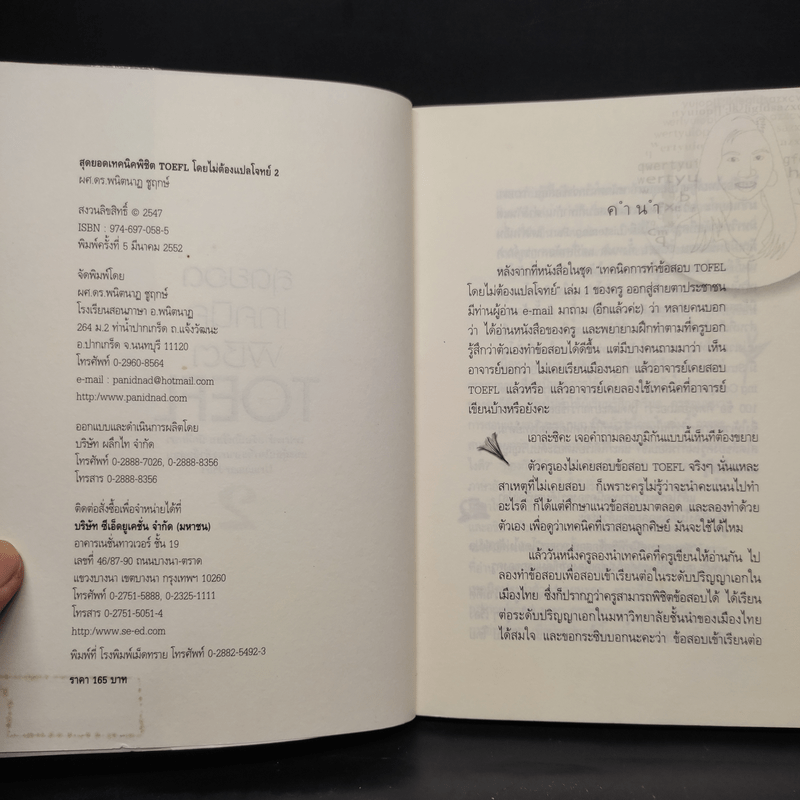 สุดยอดเทคนิคพิชิต TOEFL โดยไม่ต้องแปลโจทย์ 2
ผศ.ดร.พนิตนาฏ ชูฤกษ์
สงวนลิขสิทธิ์ © 2547
ISBN : 974-697-058-5
พิมพ์ครั้งที่ 5 มีนาคม 2552
จัดพิมพ์โดย
ผศ.ดร.พนิตนาฏ ชูฤกษ์
โรงเรียนสอนภาษา อ.พนิตนาฏ
264 ม.2 ท่าน้ำปากเกร็ด ถ.แจ้งวัฒนะ
อ.ปากเกร็ด จ.นนทบุรี 11120
โทรศัพท์ 0-2960-8564
e-mail : panidnad@hotmail.com
http:/www.panidnad.com
ออกแบบและดำเนินการผลิตโดย
บริษัท ผลึกไท จำกัด
โทรศัพท์ 0-2888-7026, 0-2888-8356
โทรสาร 0-2888-8356
ติดต่อสั่งซื้อเพื่อจำหน่ายได้ที่
บริษัท ซีเอ็ดยูเคชั่น จำกัด (มหาชน)
อาคารเนชั่นทาวเวอร์ ชั้น 19
เลขที่ 46/87-90 ถนนบางนา-ตราด
แขวงบางนา เขตบางนา กรุงเทพฯ 10260
โทรศัพท์ 0-2751-5888, 0-2325-1111
โทรสาร 0-2751-5051-4
http:/www.se-ed.com
พิมพ์ที่ โรงพิมพ์เม็ดทราย โทรศัพท์ 0-2882-5492-3
ราคา 165 บาท
คำนำ
หลังจากที่หนังสือในชุด "เทคนิคการทำข้อสอบ TOFEL
โดยไม่ต้องแปลโจทย์" เล่ม 1 ของครู ออกสู่สายตาประชาชน
มีท่านผู้อ่าน e-mail มาถาม (อีกแล้วค่ะ) ว่า หลายคนบอก
ว่า ได้อ่านหนังสือของครู และพยายามฝึกทำตามที่ครูบอก
รู้สึกว่าตัวเองทำข้อสอบได้ดีขึ้น แต่มีบางคนถามมาว่า เห็น
อาจารย์บอกว่า ไม่เคยเรียนเมืองนอก แล้วอาจารย์เคยสอบ
TOEFL แล้วหรือ แล้วอาจารย์เคยลองใช้เทคนิคที่อาจารย์
เขียนบ้างหรือยังคะ
เอาล่ะซิคะ เจอคำถามลองภูมิกันแบบนี้เห็นทีต้องขยาย
ตัวครูเองไม่เคยสอบข้อสอบ TOEFL จริงๆ นั่นแหละ
สาเหตุที่ไม่เคยสอบ ก็เพราะครูไม่รู้ว่าจะนำคะแนนไปทำ
อะไรดี ก็ได้แต่ศึกษาแนวข้อสอบมาตลอด และลองทำด้วย
ตัวเอง เพื่อดูว่าเทคนิคที่เราสอนลูกศิษย์ มันจะใช้ได้ไหม
แล้ววันหนึ่งครูลองนำเทคนิคที่ครูเขียนให้อ่านกัน ไป
ลองทำข้อสอบเพื่อสอบเข้าเรียนต่อในระดับปริญญาเอกใน
เมืองไทย ซึ่งก็ปรากฏว่าครูสามารถพิชิตข้อสอบได้ ได้เรียน
ต่อระดับปริญญาเอกในมหาวิทยาลัยชั้นนำของเมืองไทย
ได้สมใจ และขอกระซิบบอกนะคะว่า ข้อสอบเข้าเรียนต่อ